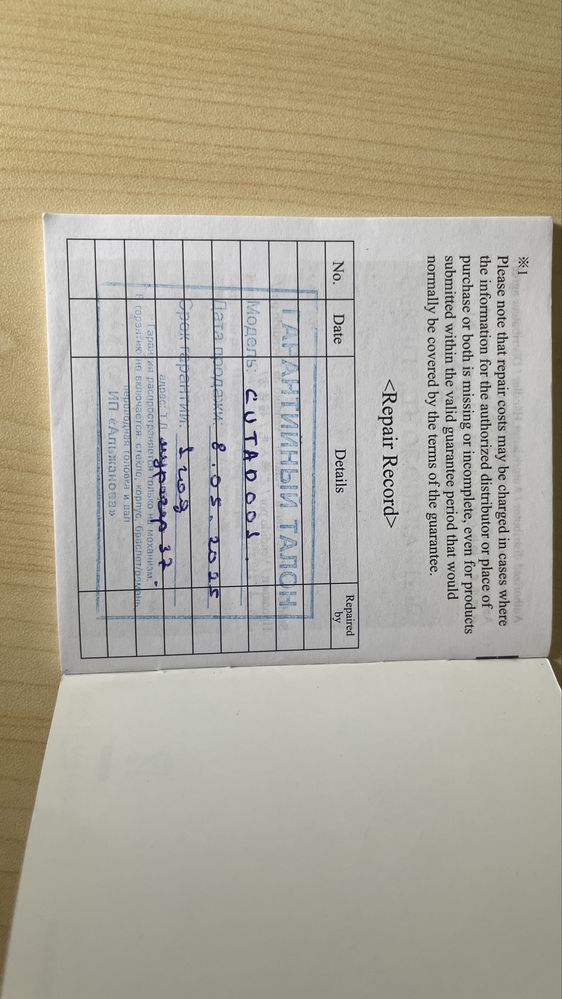 ※1
Please note that repair costs may be charged in cases where
the information for the authorized distributor or place of
purchase or both is missing or incomplete, even for products
submitted within the valid guarantee period that would
normally be covered by the terms of the guarantee.
<Repair Record>
No. Date Details Repaired by
ГАРАНТИЙНЫЙ ТАЛОН
Модель:
Дата продажи: 8.05.2025
Срок гарантии: 1 год
адрес: Т.Д. 37
Гарантия распространяется только на механизм.
В гарантию не включается: стекло, корпус, браслет/ремень,
переводная головка и вал
ИП «Альжанова»